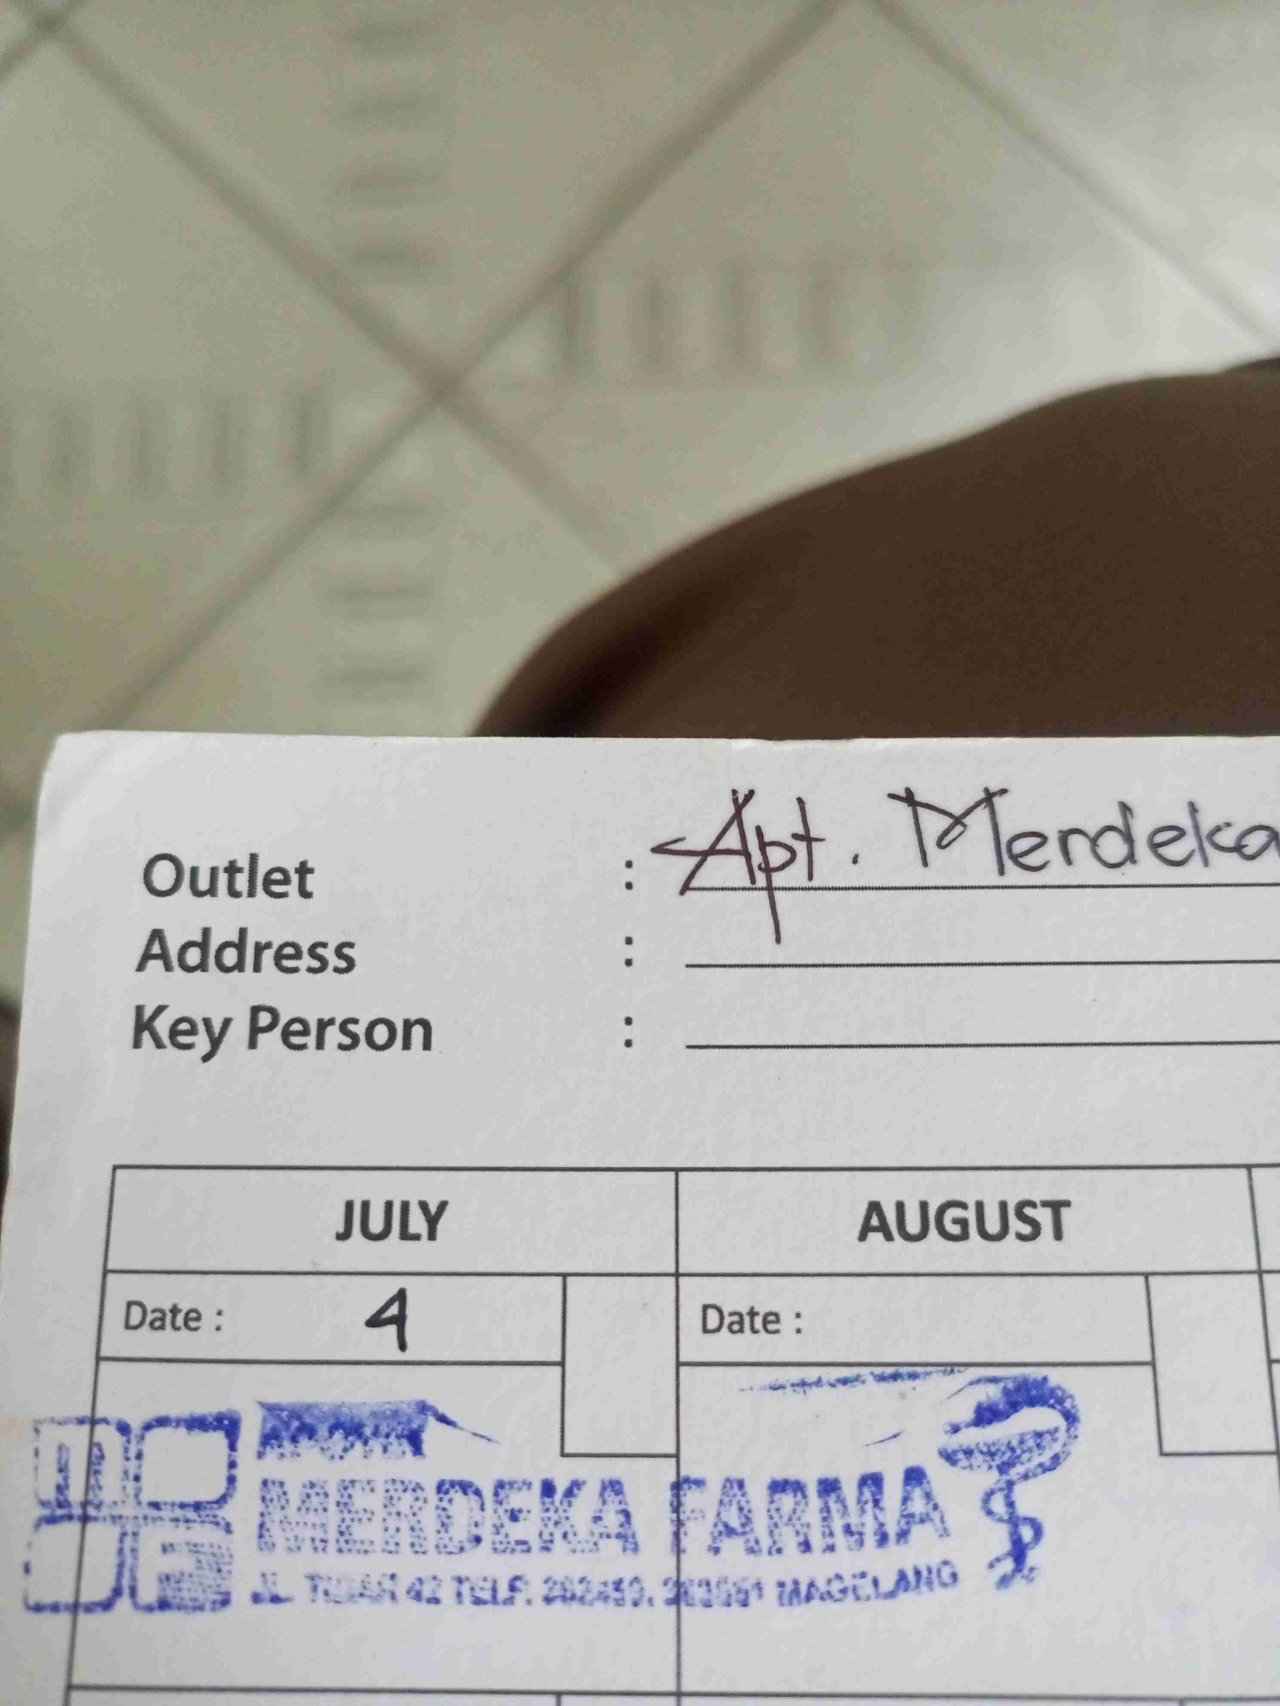 Outlet : Apt. Merdeka
Address :
Key Person :
JULY AUGUST
Date : 4 Date :
APOTIK
MERDEKA FARMA
JL. TIDAR 42 TELP. MAGELANG